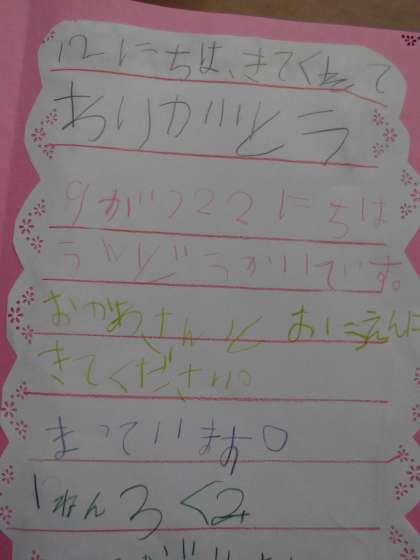 12にちは、きてくれて
ありがとう
9がつ22にちは
うんどうかいです。
おかあさんと おうえんに
きてください。
まっています。
1ねん3くみ